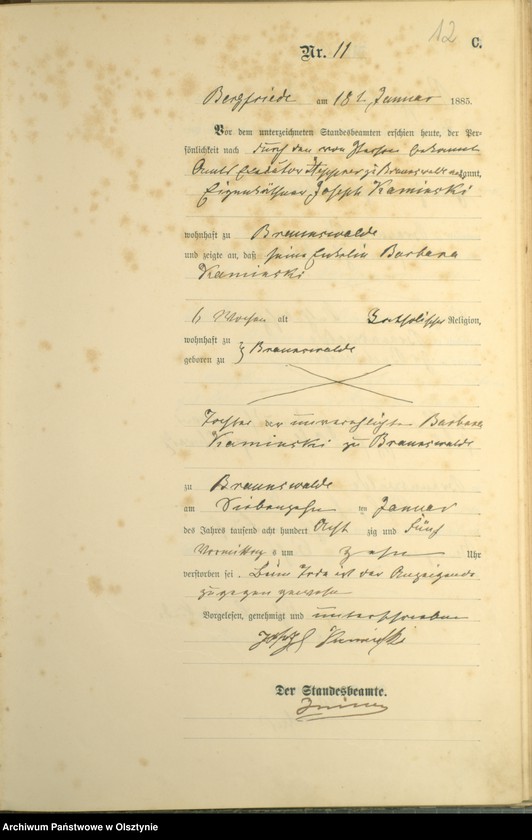 12
C.
Nr. 11
Bergfriede am 18t. Januar 1885.
Vor dem unterzeichneten Standesbeamten erschien heute, der Per-
sönlichkeit nach durch den von Person bekannt
Amts zu Braunswalde kannt,
Eigenkäthner Joseph Kaminski
wohnhaft zu Braunswalde
und zeigte an, daß seine Enkelin Barbara
Kaminski
6 Wochen alt katholischer Religion,
wohnhaft zu
geboren zu } Braunswalde
Tochter der unverehelichten Barbara
Kaminski zu Braunswalde
zu Braunswalde
am Siebenzehn ten Januar
des Jahres tausend acht hundert Acht zig und Fünf
Vormittag s um zehn Uhr
verstorben sei. Beim Tode ist der Anzeigende
zugegen gewesen
Vorgelesen, genehmigt und unterschrieben
Joseph Kaminski
Der Standesbeamte.
Archiwum Państwowe w Olsztynie